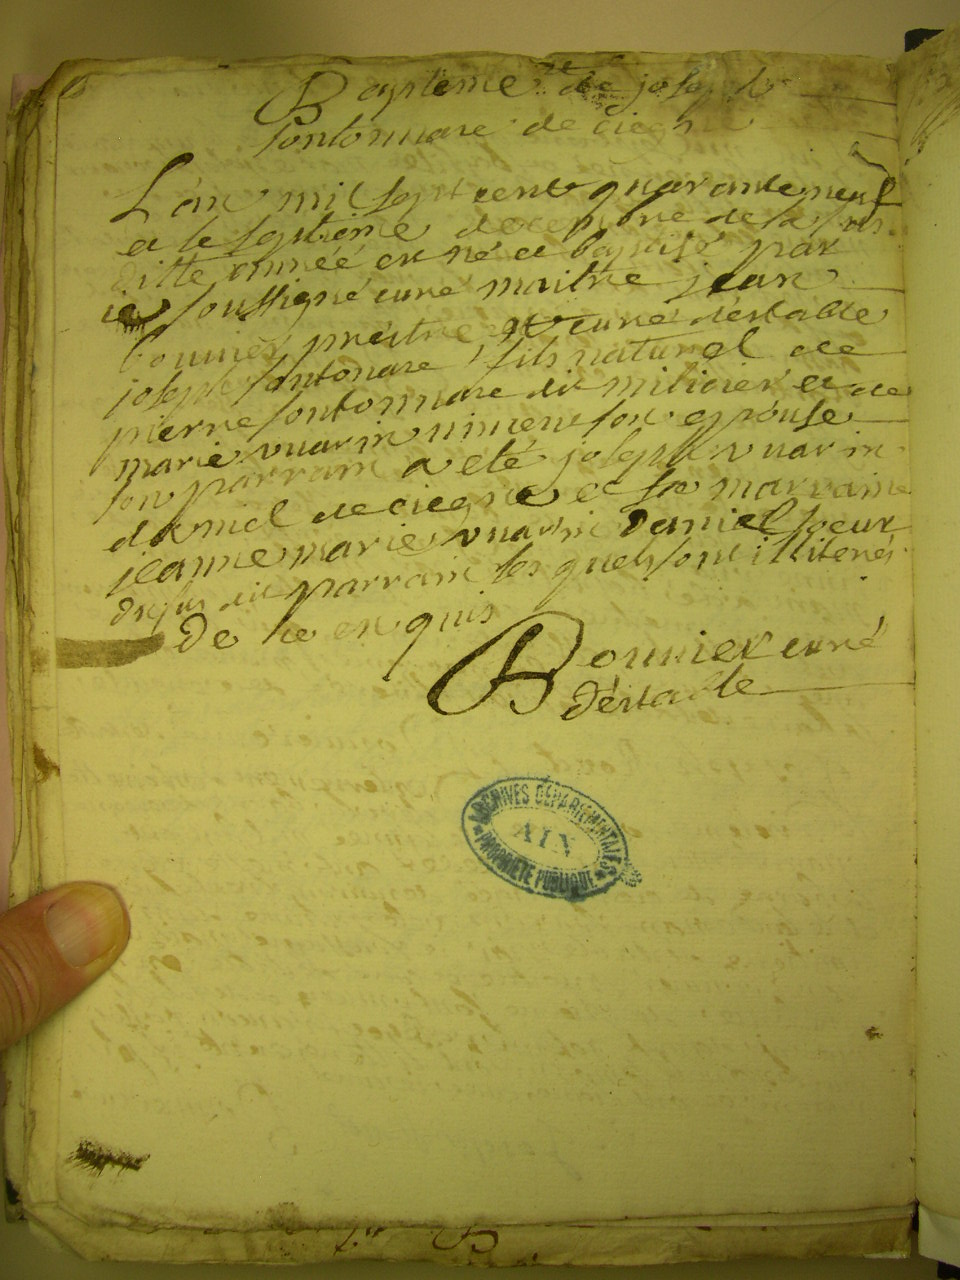 Bapteme de joseph
fontonnare de ciegne
L'an mil sept cent quarante neuf
et le septième decembre de la sus
ditte année est né et baptisé par
le soussigné curé maitre jean
bonnier prestre et curé déstable
joseph fontonare fils naturel de
pierre fontonnare dit milicier et de
marie vuarin son epouse
son parrain a eté joseph vuarin
daniel de ciegne et sa marraine
jeanne marie vuarin Daniel soeur
du dit parrain les quels sont illiterés
De ce enquis
Bonnier curé
Déstable
ARCHIVES DÉPARTEMENTALES
AIN
PROPRIÉTÉ PUBLIQUE